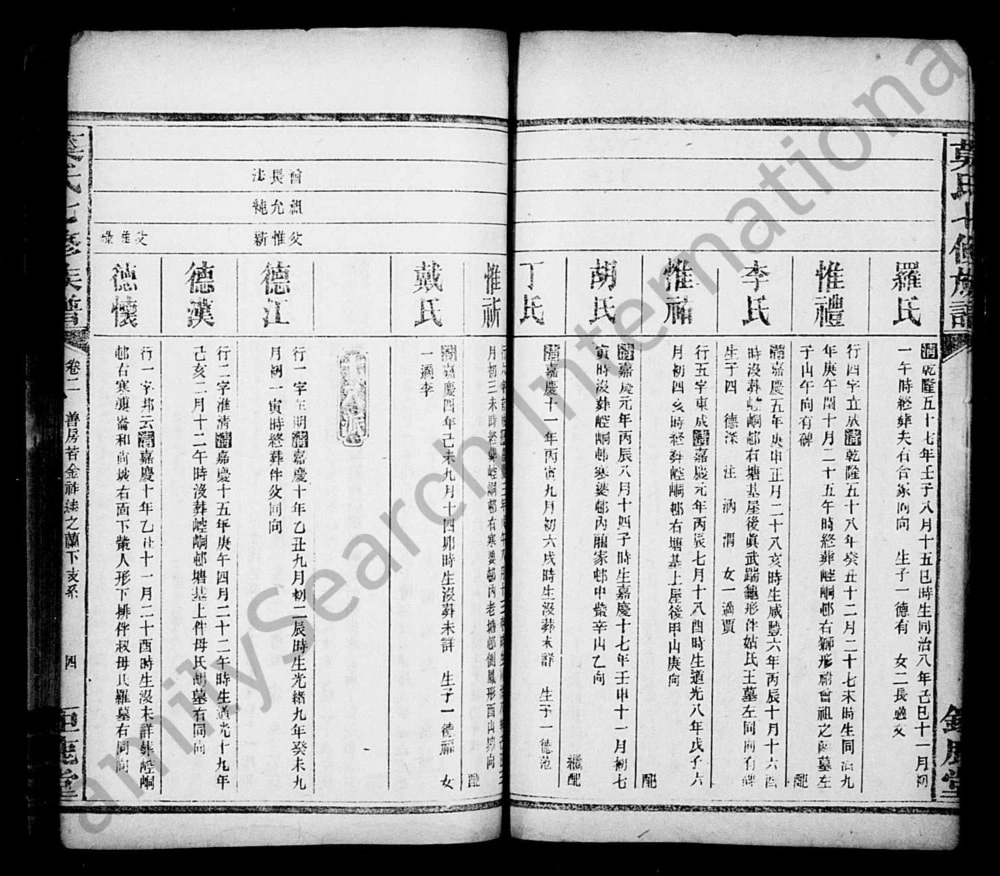 莫氏七修族譜
鉅鹿堂
羅氏
清乾隆五十七年壬子八月十五巳時生同治八年己巳十一月初
一午時終葬夫右合冢同向 生子一德有 女二長適文
惟禮
行四字立成清乾隆五十八年癸丑十二月二十七未時生同治九
年庚午閏十月二十五午時終葬崆峒邨右獅形曾祖之墓左
子山午向有碑
配
李氏
清嘉慶五年庚申正月二十八亥時生咸豐六年丙辰十月十六
時沒葬崆峒邨右塘基屋後眞武踹龜形伴姑氏王墓左同向有碑
生子四 德深 注 汭 渭 女一適賈
惟祐
行五字東成清嘉慶元年丙辰七月十八酉時生道光八年戊子六
月初四亥時終葬崆峒邨右塘基上屋後甲山庚向
配
胡氏
清嘉慶元年丙辰八月十四子時生嘉慶十七年壬申十一月初七
寅時沒葬崆峒邨寒婆邨內羅家邨中嘴辛山乙向
繼配
丁氏
清嘉慶十一年丙寅九月初六戌時生沒葬未詳 生子一德范
惟祈
月初三未時終葬崆峒邨右寒婆邨內老塘邨側鳳形酉山卯向
配
戴氏
清嘉慶四年己未九月十四卯時生沒葬未詳 生子一德福 女
一適李
曾長法
祖允純
父惟新
德江
行一字王朝清嘉慶十年乙丑九月初二辰時生光緒九年癸未九
月初一寅時終葬伴父同向
德漢
行二字淮清清嘉慶十五年庚午四月二十二午時生道光十九年
己亥二月十二午時沒葬崆峒邨塘基上伴母氏胡墓右同向
父惟祿
德懷
行一字邦云清嘉慶十年乙丑十一月二十酉時生沒未詳葬崆峒
邨右寒婆崙和尚坡右面下嘴人形下排伴叔母氏羅墓右同向
莫氏七修族譜
卷二
善房岩金祚法之蘭下支系
四
鉅鹿堂